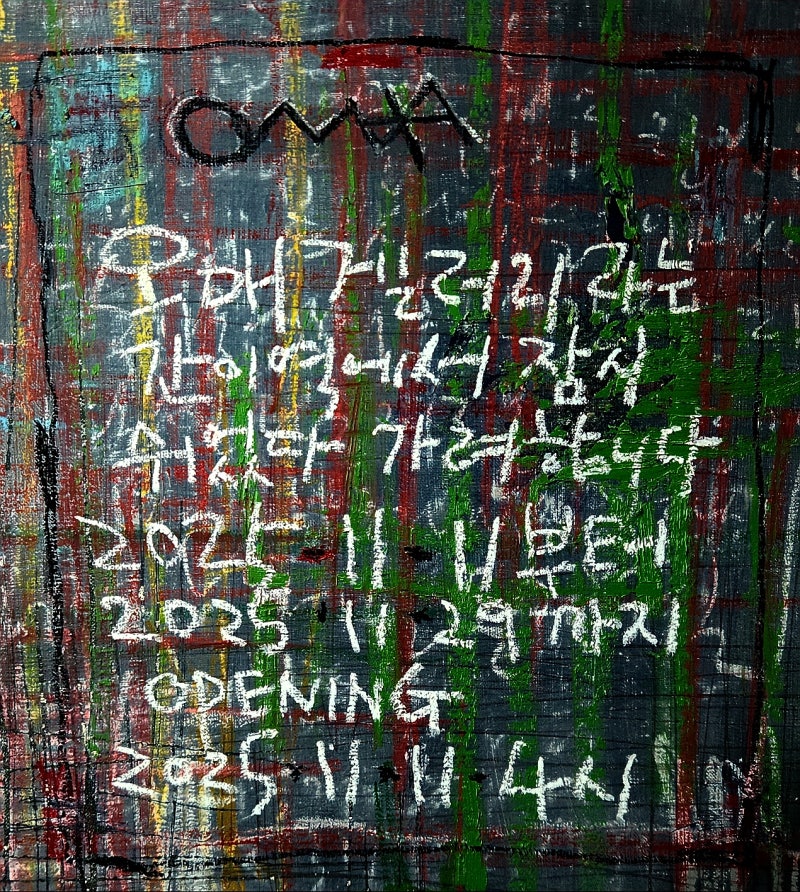 오매겔러리 라는
간이역에서 잠시
쉬었다 가려합니다
2025·11·11부터
2025·11·29까지
OPENING
2025·11·11·4시